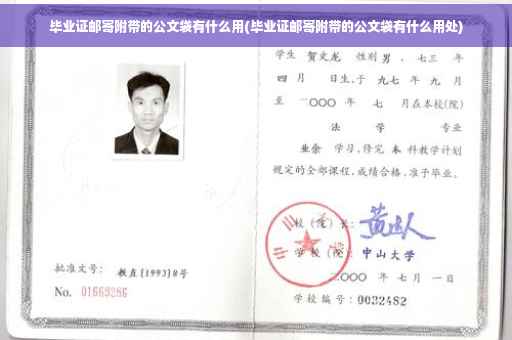 毕业证邮寄附带的公文袋有什么用(毕业证邮寄附带的公文袋有什么用处)
学生 贺文龙 性别 男 、七三 年
四 月 日生,于 九七 年 九 月
至 二〇〇〇 年 七 月在本校(院)
法 学 专业
业余 学习,修完 本 科教学计划
规定的全部课程,成绩合格,准予毕业。
校(院)长:
学校(院): 中山大学
二〇〇〇 年 七 月 一 日
学校编号:0032482
批准文号: 教直(1993)8号
No. 01669286